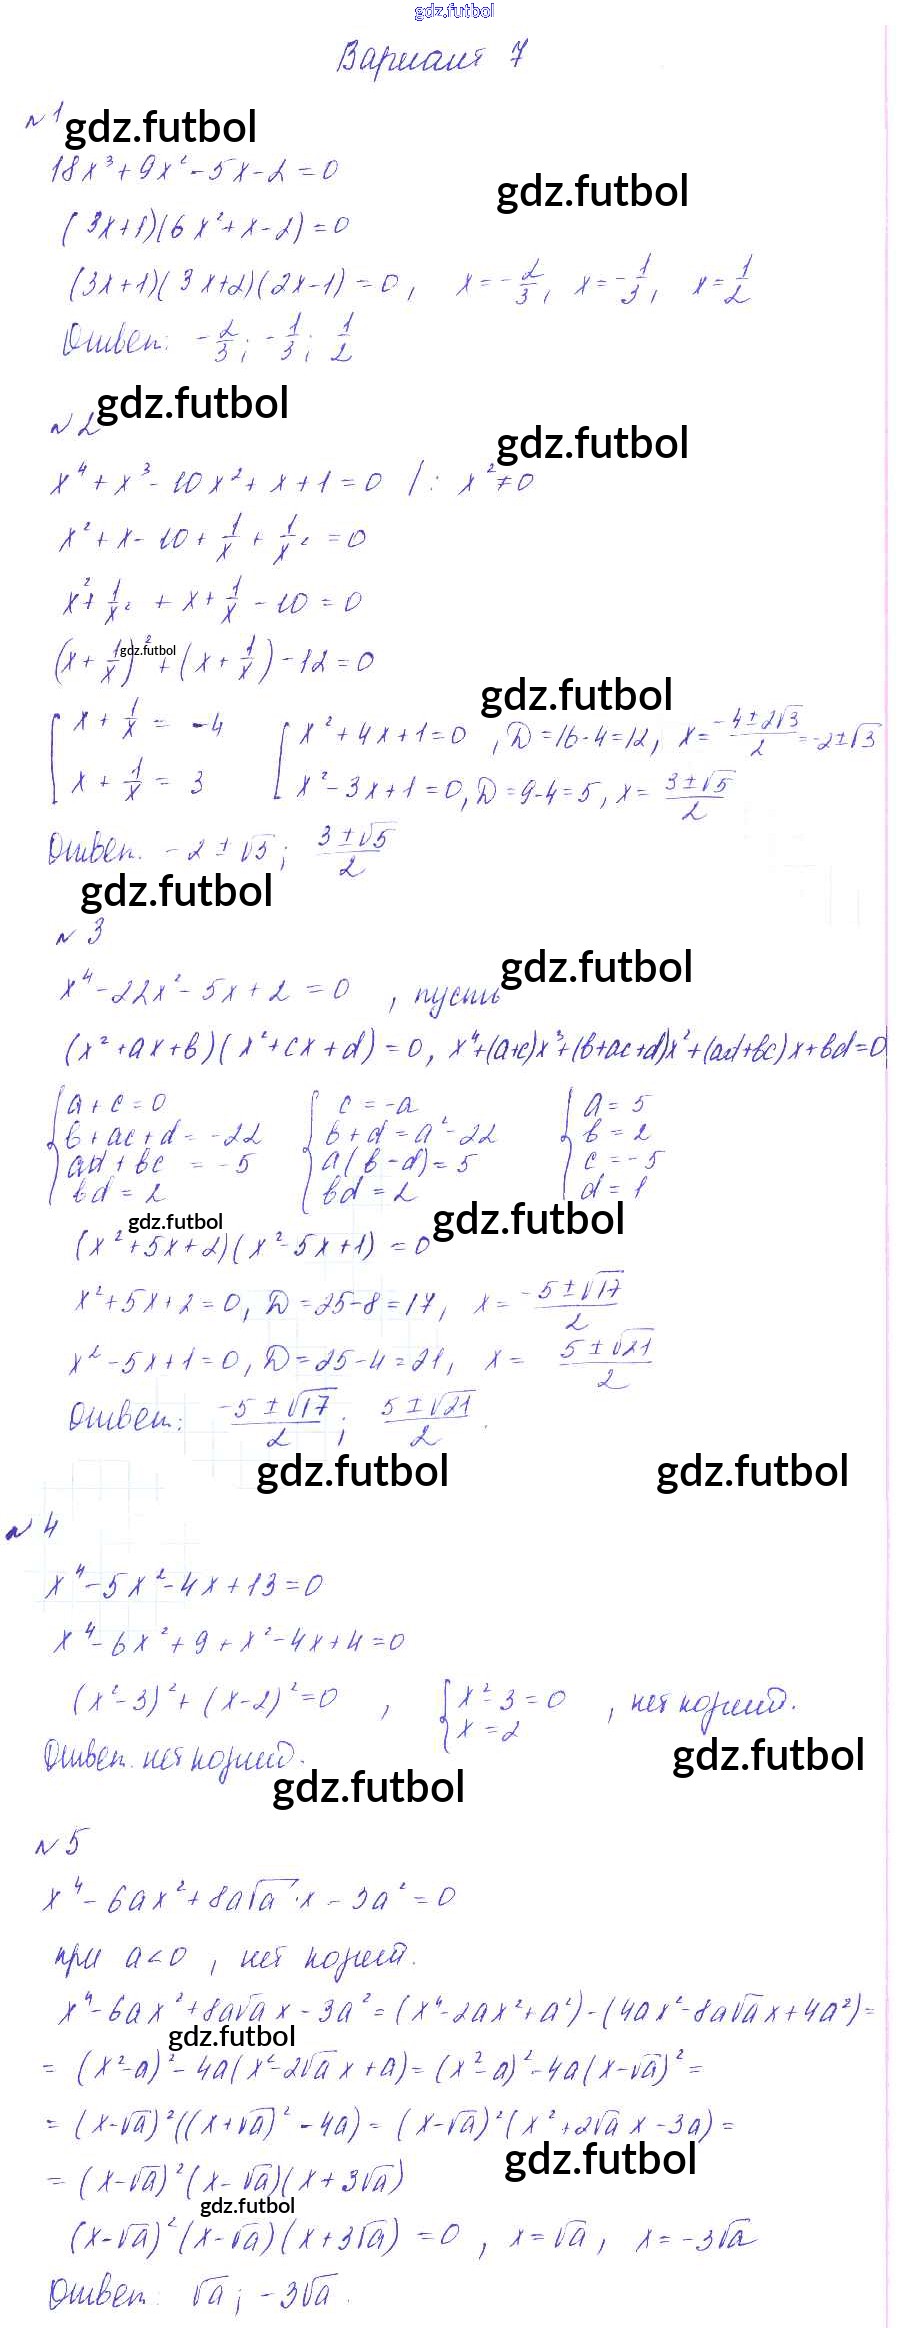 gdz.futbol
Вариант 7
№1 gdz.futbol
18x³+9x²-5x-2=0
gdz.futbol
(3x+1)(6x²+x-2)=0
(3x+1)(3x+2)(2x-1)=0, x=-2/3, x=-1/3, x=1/2
Ответ: -2/3; -1/3; 1/2
№2 gdz.futbol
gdz.futbol
x⁴+x³-10x²+x+1=0 |: x²≠0
x²+x-10+1/x+1/x²=0
x²+1/x²+x+1/x-10=0
(x+1/x)²+(x+1/x)-12=0 gdz.futbol
gdz.futbol
[x+1/x=-4 [x²+4x+1=0, D=16-4=12, x=(-4±2√3)/2=-2±√3
x+1/x=3 x²-3x+1=0, D=9-4=5, x=(3±√5)/2
Ответ. -2±√3; (3±√5)/2
gdz.futbol
№3
gdz.futbol
x⁴-22x²-5x+2=0, пусть
(x²+ax+b)(x²+cx+d)=0, x⁴+(a+c)x³+(b+ac+d)x²+(ad+bc)x+bd=0
{a+c=0 {c=-a {a=5
b+ac+d=-22 b+d=a²-22 b=2
ad+bc=-5 a(b-d)=5 c=-5
bd=2 bd=2 d=1
gdz.futbol gdz.futbol
(x²+5x+2)(x²-5x+1)=0
x²+5x+2=0, D=25-8=17, x=(-5±√17)/2
x²-5x+1=0, D=25-4=21, x=(5±√21)/2
Ответ: (-5±√17)/2; (5±√21)/2.
gdz.futbol gdz.futbol
№4
x⁴-5x²-4x+13=0
x⁴-6x²+9+x²-4x+4=0
(x²-3)²+(x-2)²=0, {x²-3=0, нет корней.
x=2
Ответ. нет корней.
gdz.futbol
gdz.futbol
№5
x⁴-6ax²+8a√a·x-3a²=0
при a<0, нет корней.
x⁴-6ax²+8a√a x-3a²=(x⁴-2ax²+a²)-(4ax²-8a√a x+4a²)=
gdz.futbol
=(x²-a)²-4a(x²-2√a x+a)=(x²-a)²-4a(x-√a)²=
=(x-√a)²((x+√a)²-4a)=(x-√a)²(x²+2√a x-3a)=
gdz.futbol
=(x-√a)²(x-√a)(x+3√a)
gdz.futbol
(x-√a)²(x-√a)(x+3√a)=0, x=√a, x=-3√a
Ответ: √a; -3√a.